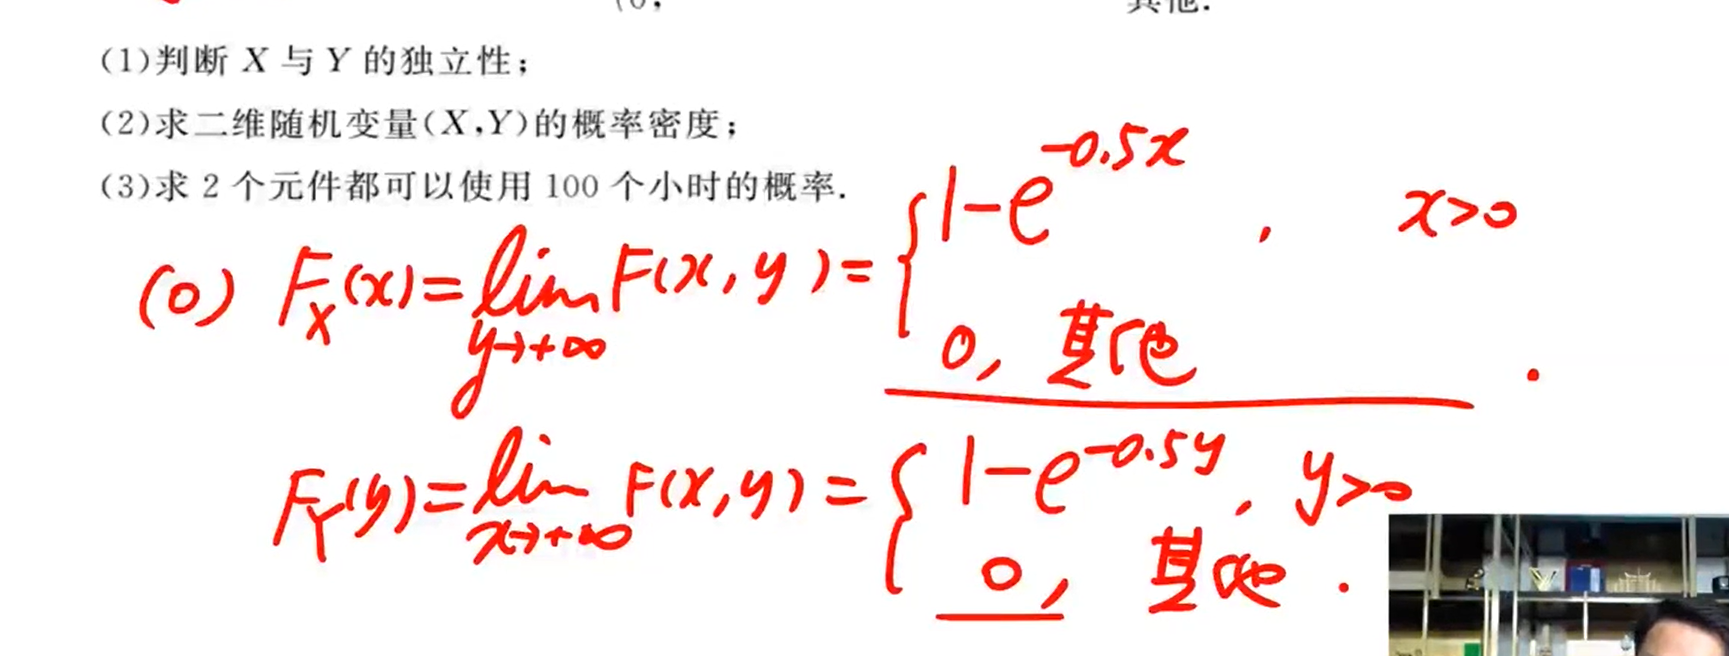 (1)判断 X 与 Y 的独立性；
(2)求二维随机变量(X,Y)的概率密度；
(3)求 2 个元件都可以使用 100 个小时的概率.
(0) F_X(x)=lim_{y→+∞} F(x,y)={1-e^{-0.5x}, x>0
0, 其他.
F_Y(y)=lim_{x→+∞} F(x,y)={1-e^{-0.5y}, y>0
0, 其他.